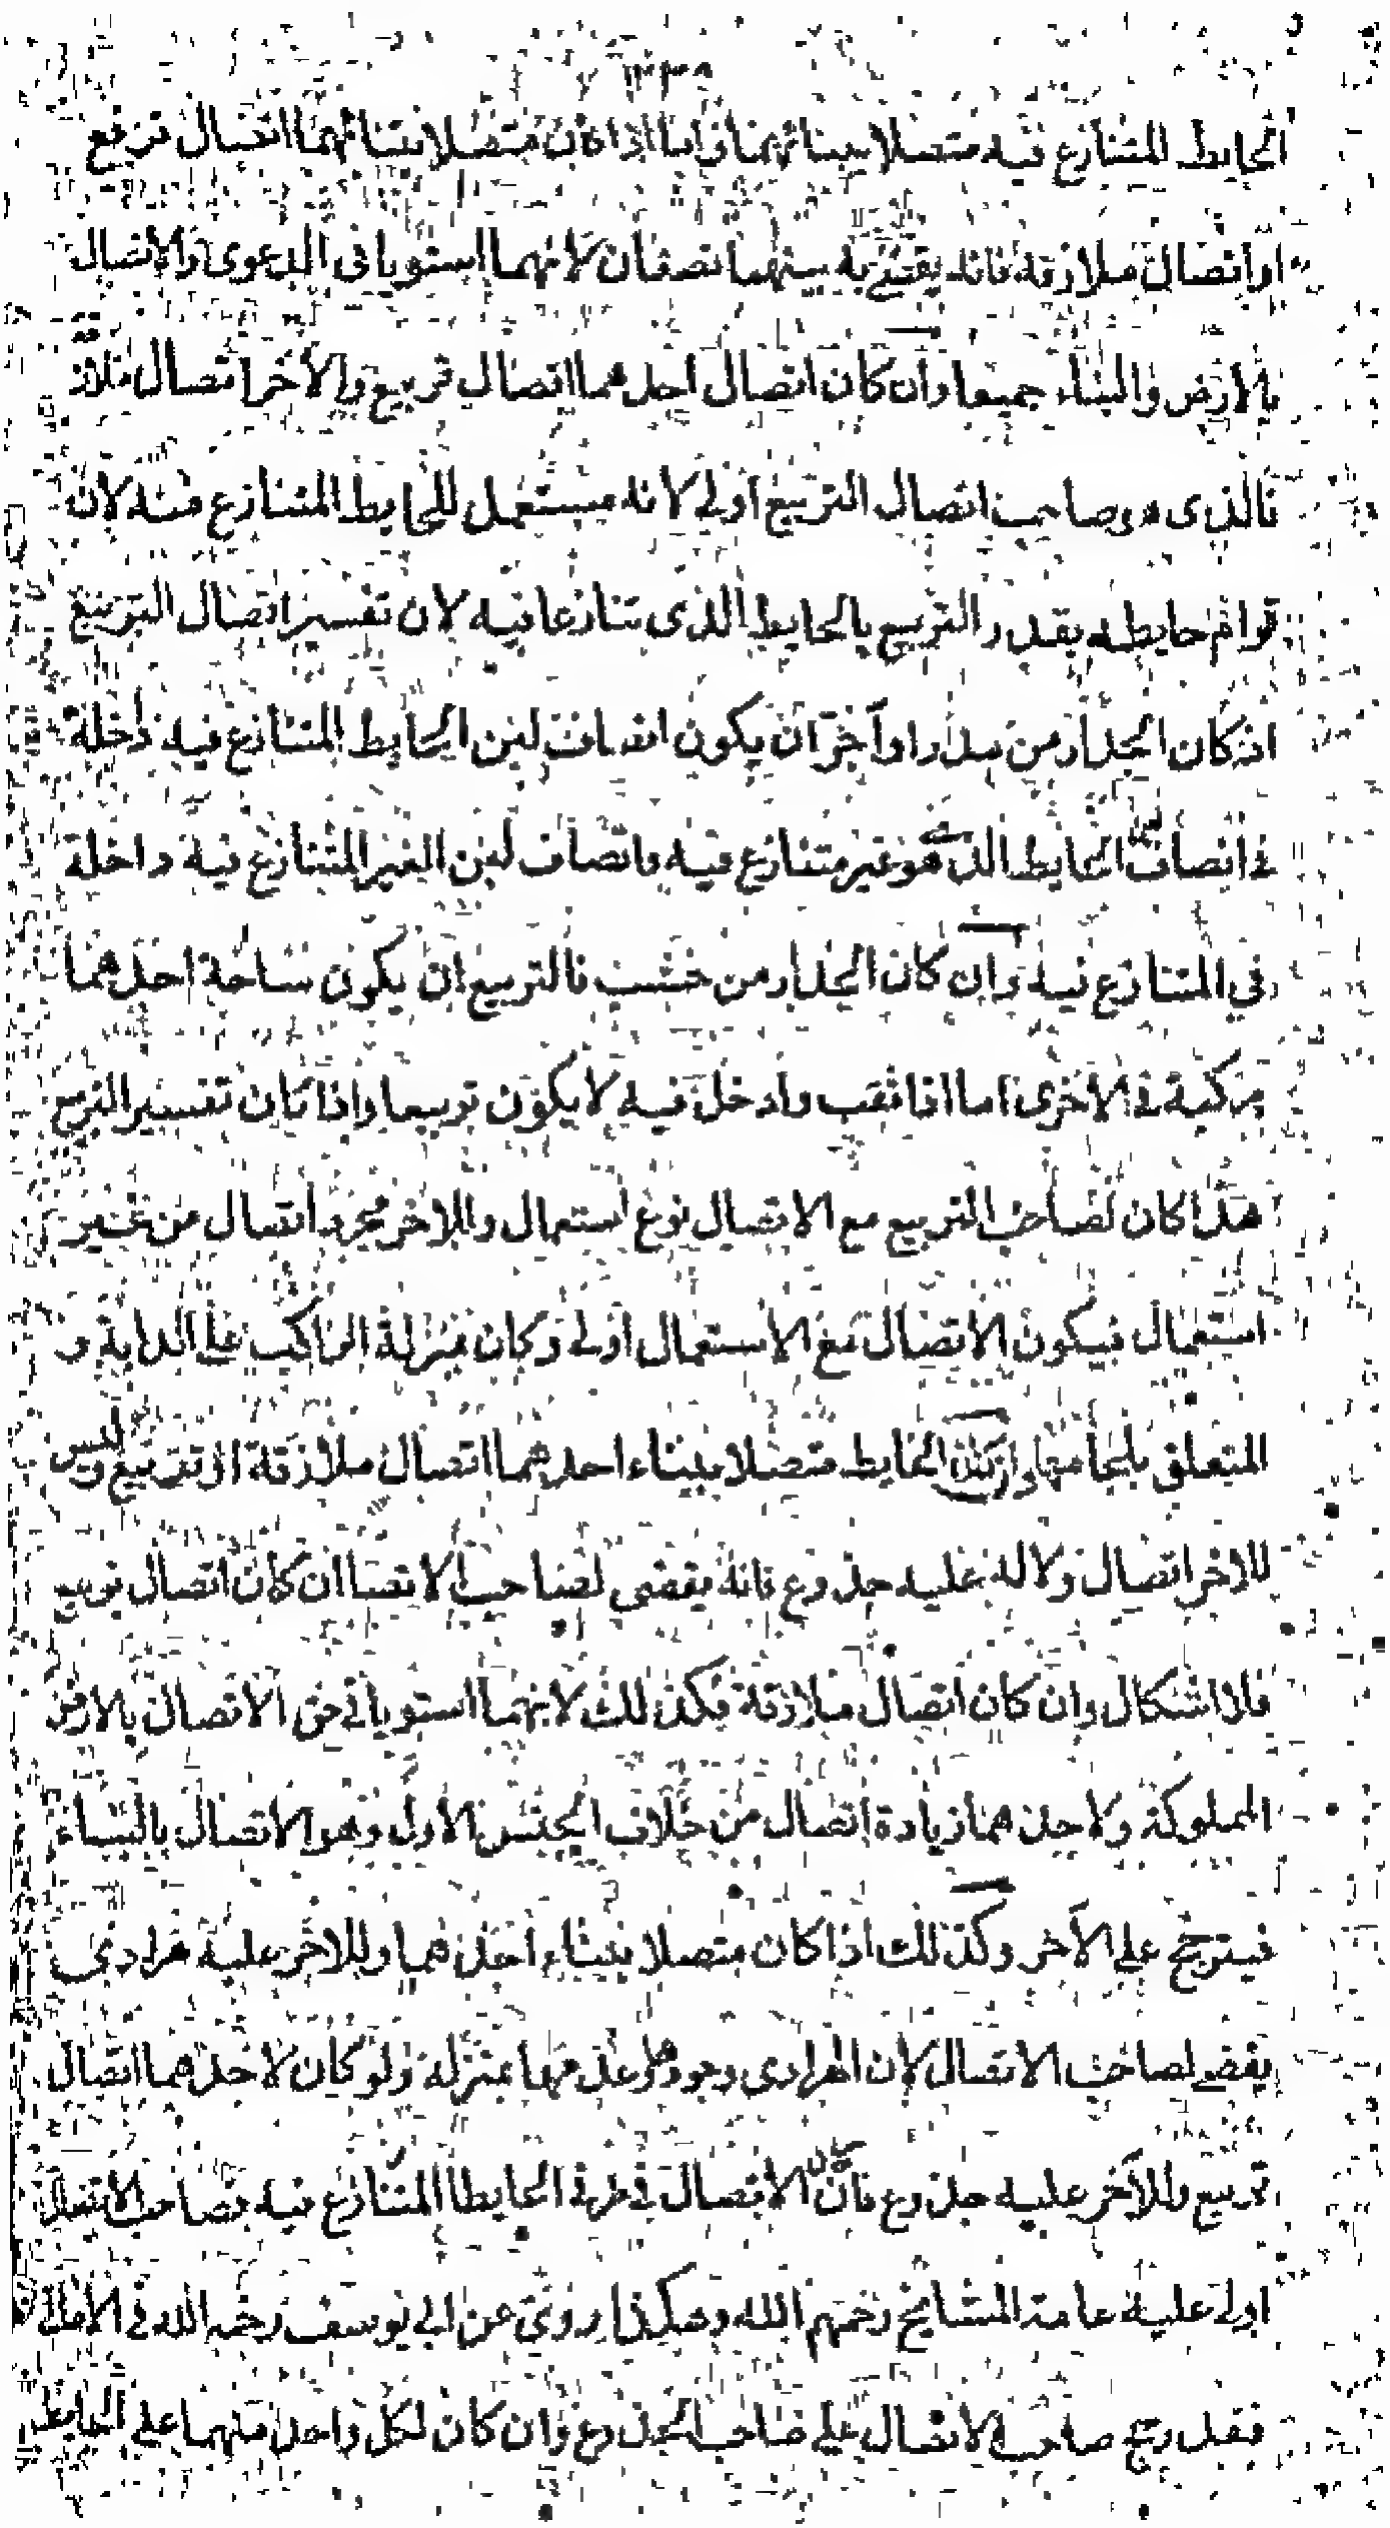 الحايط المتنازع فيه متصلا ببنائهما فاما اذا كان متصلا ببنائهما اتصال تربيع
او اتصال ملازقة فانه يقضى به بينهما نصفان لانهما استويا في الدعوى والاتصال
بالارض والبناء جميعا وان كان اتصال احدهما اتصال تربيع والاخر اتصال ملازقة
فالذى هو صاحب اتصال التربيع اولى لانه مستعمل للحايط المتنازع فيه لان
قوام حايطه بقدر التربيع بالحايط الذى تنازعا فيه لان تفسير اتصال التربيع
انه كان الجدار من مدر او آجر ان يكون انصاف لبن الحايط المتنازع فيه داخلة
في انصاف لبن الحايط الذى هو غير متنازع فيه وانصاف لبن الغير المتنازع فيه داخلة
في المتنازع فيه وان كان الجدار من خشب فالتربيع ان يكون ساحة احدهما
مركبة في الاخرى اما اذا ثقب وادخل فيه لا يكون تربيعا واذا كان تفسير التربيع
هذا كان لصاحب التربيع مع الاتصال نوع استعمال وللاخر مجرد اتصال من غير
استعمال فيكون الاتصال مع الاستعمال اولى وكان بمنزلة الراكب على الدابة و
المتعلق بلجامها وان كان الحايط متصلا ببناء احدهما اتصال ملازقة او تربيع وليس
للاخر اتصال ولا له عليه جذوع فانه يقضى لصاحب الاتصال ان كان اتصال تربيع
فلا اشكال وان كان اتصال ملازقة فكذلك لانهما استويا في حق الاتصال بالارض
المملوكة ولاحدهما زيادة اتصال من خلاف الجنس الاول وهو الاتصال بالبناء
فيترجح على الآخر وكذلك اذا كان متصلا ببناء احدهما وللاخر عليه هرادى
يقضى لصاحب الاتصال لان الهرادى وجودها وعدمها بمنزلة ولو كان لاحدهما اتصال
تربيع وللآخر عليه جذوع فان كان الاتصال في طرفى الحايط المتنازع فيه فصاحب الاتصال
اولى عليه عامة المشايخ رحمهم الله وهكذا روى عن ابى يوسف رحمه الله في الامالى
فقد رجح صاحب الاتصال على صاحب الجذوع وان كان لكل واحد منهما على الحايط